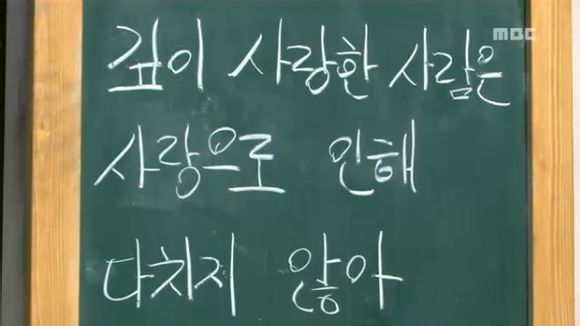 MBC
깊이 사랑한 사람은
사랑으로 인해
다치지 않아